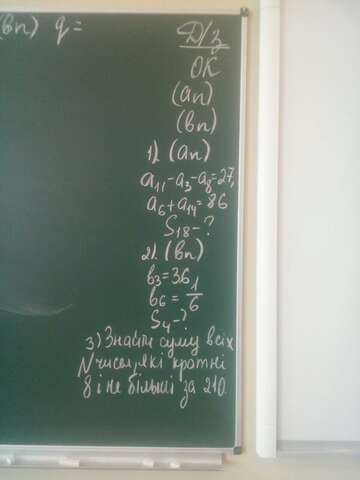 (bn) q =
Д/з
ОК
(an)
(bn)
1). (an)
a₁₁-a₃-a₈=27,
a₆+a₁₄=86
S₁₈-?
2). (bn)
b₃=36
b₆=1/6
S₄-?
3) Знайти суму всіх
N чисел, які кратні
8 і не більші за 210.